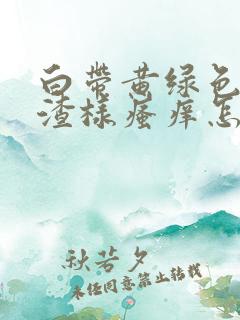 白带黄绿色
渣样瘙痒怎
秋若夕
未经同意禁止转载